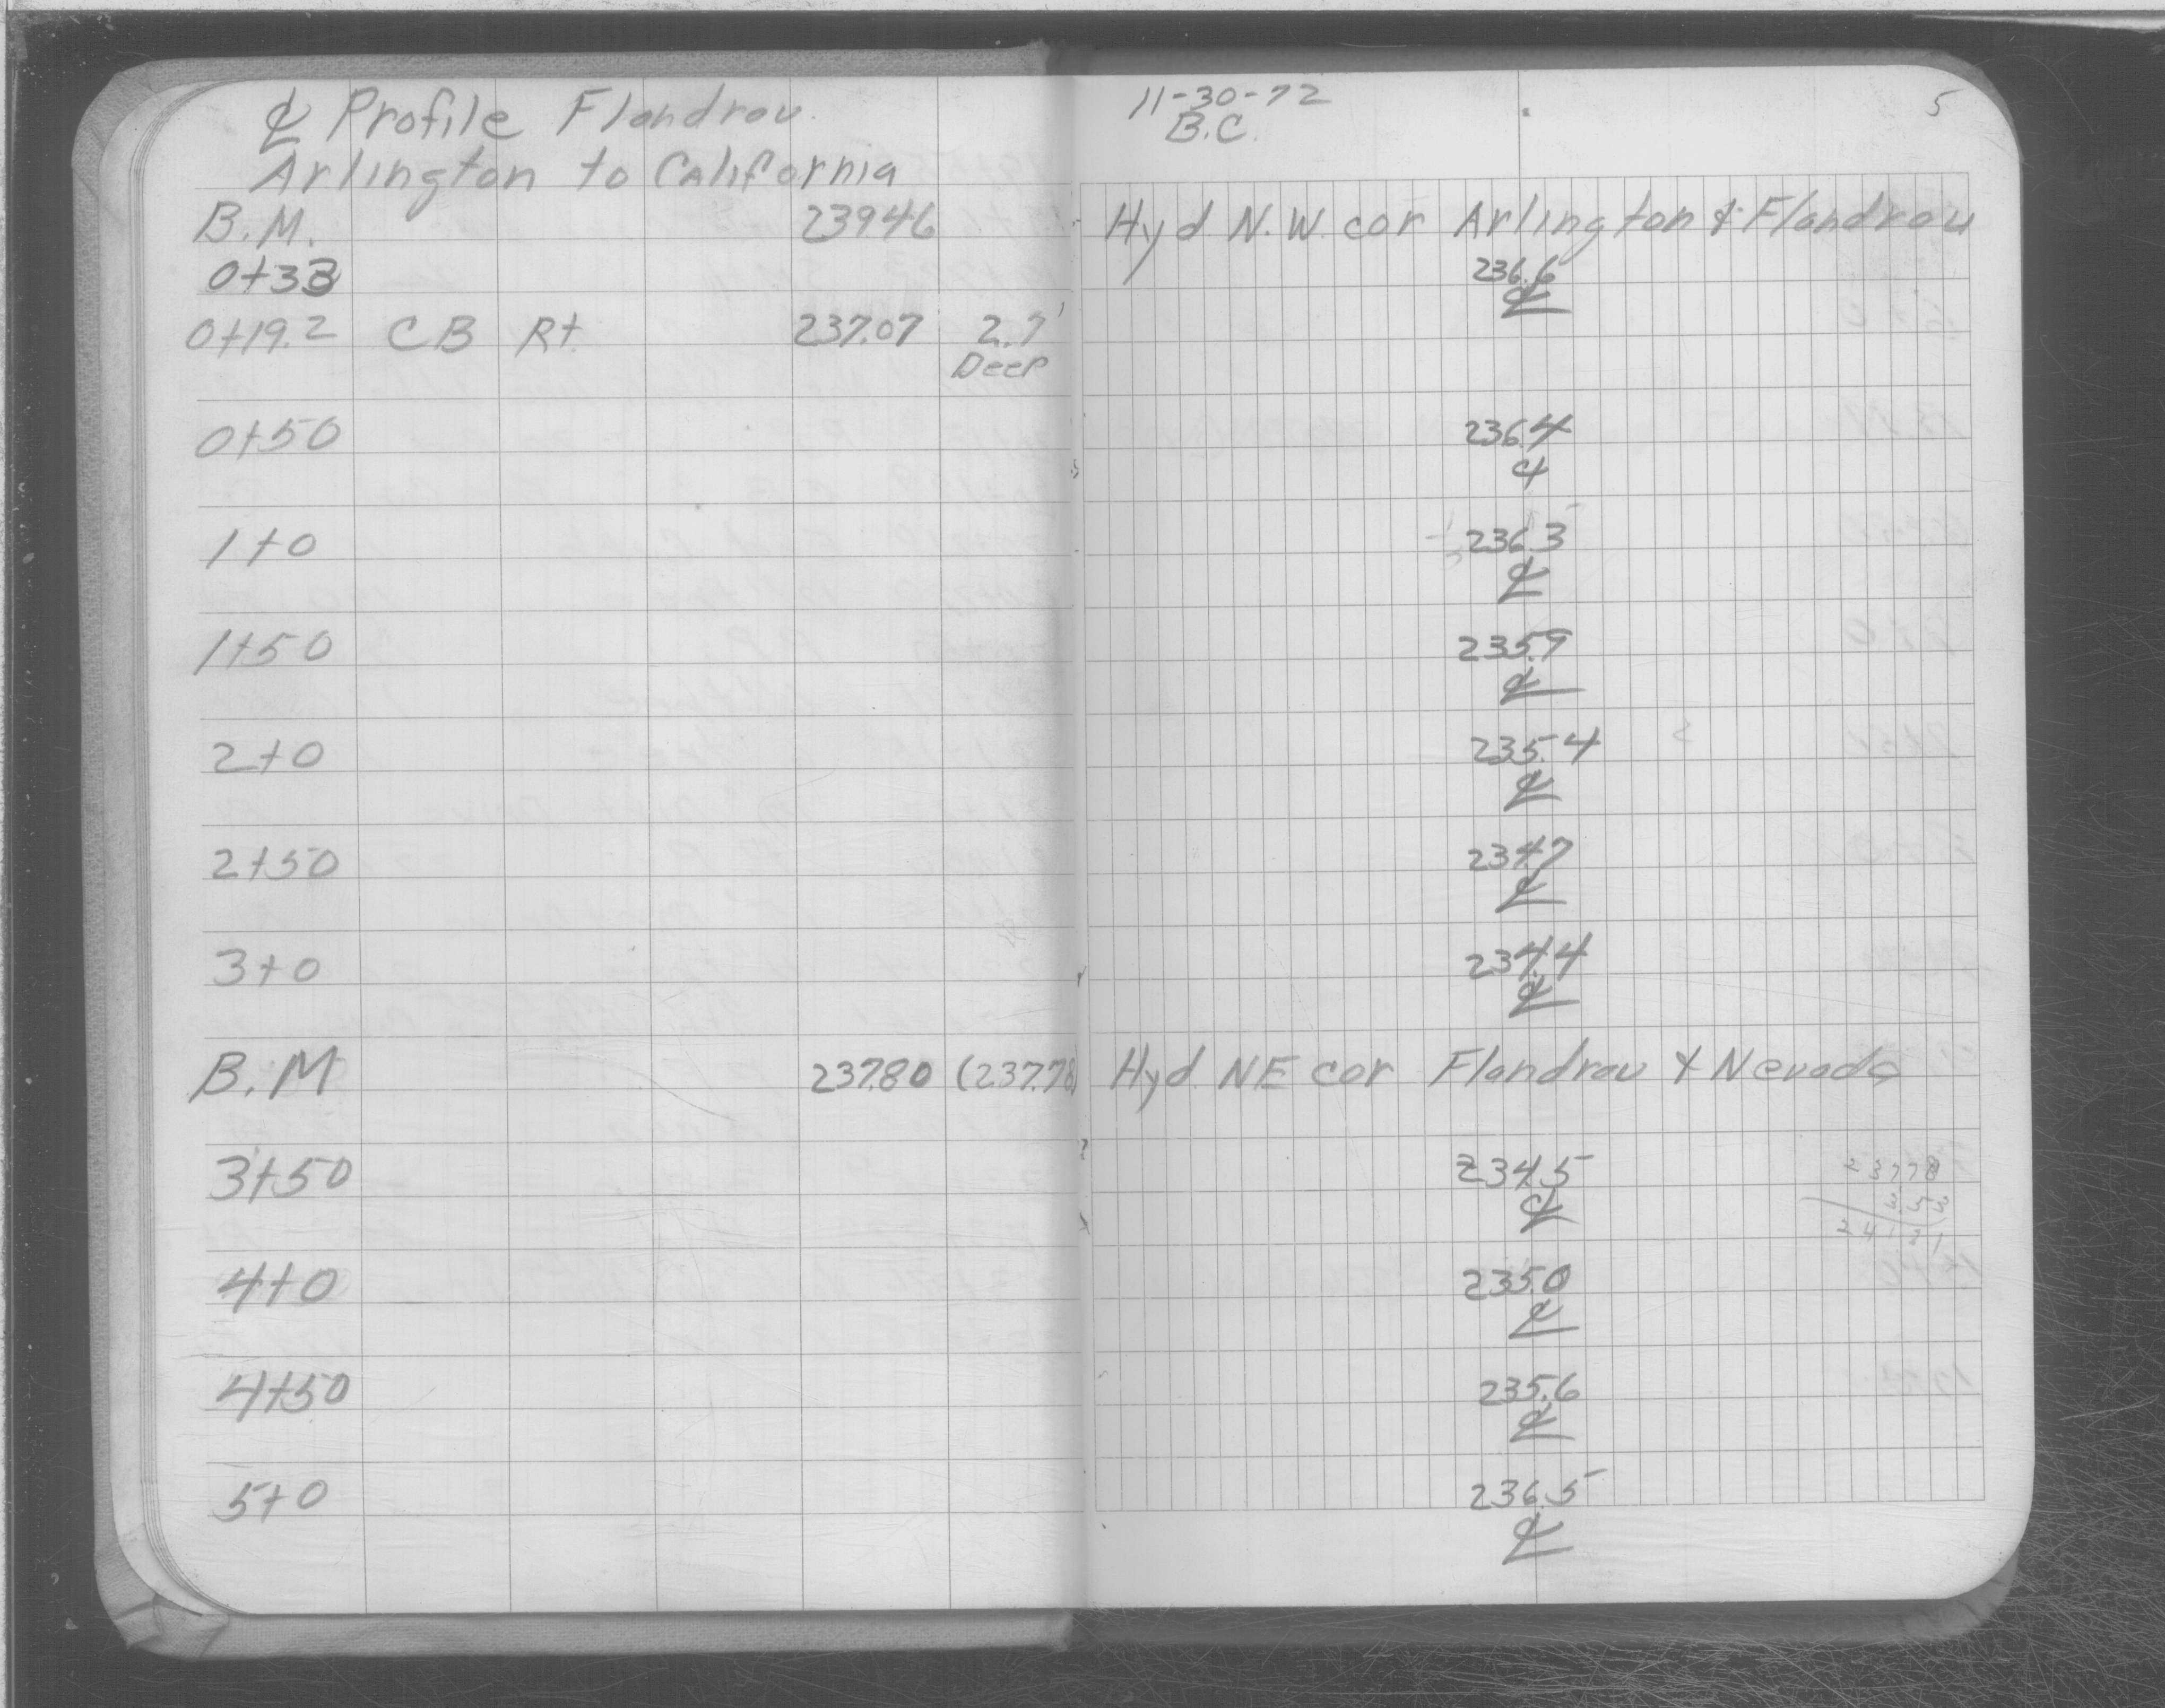 ℄ Profile Flandrau
Arlington to California
11-30-72
B.C.
5
B.M. 239.46 Hyd N.W. cor Arlington & Flandrau
0+33 236.6
℄
0+19.2 CB Rt. 237.07 2.7'
Deep
0+50 236.4
℄
1+0 236.3
℄
1+50 235.9
℄
2+0 235.4
℄
2+50 234.7
℄
3+0 234.4
℄
B.M 237.80 (237.78) Hyd. NE cor Flandrau & Nevada
3+50 234.5
℄
23778
353
24131
4+0 235.0
℄
4+50 235.6
℄
5+0 236.5
℄